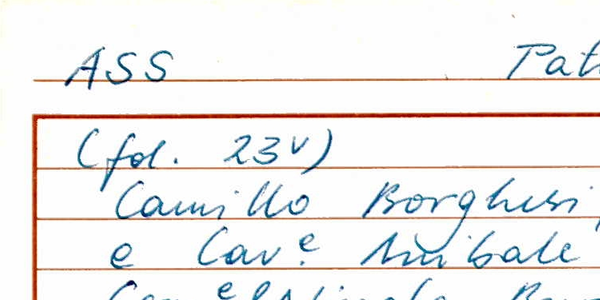 ASS Pat
(fol. 23v)
Camillo Borghesi,
e Cav.e Annibale